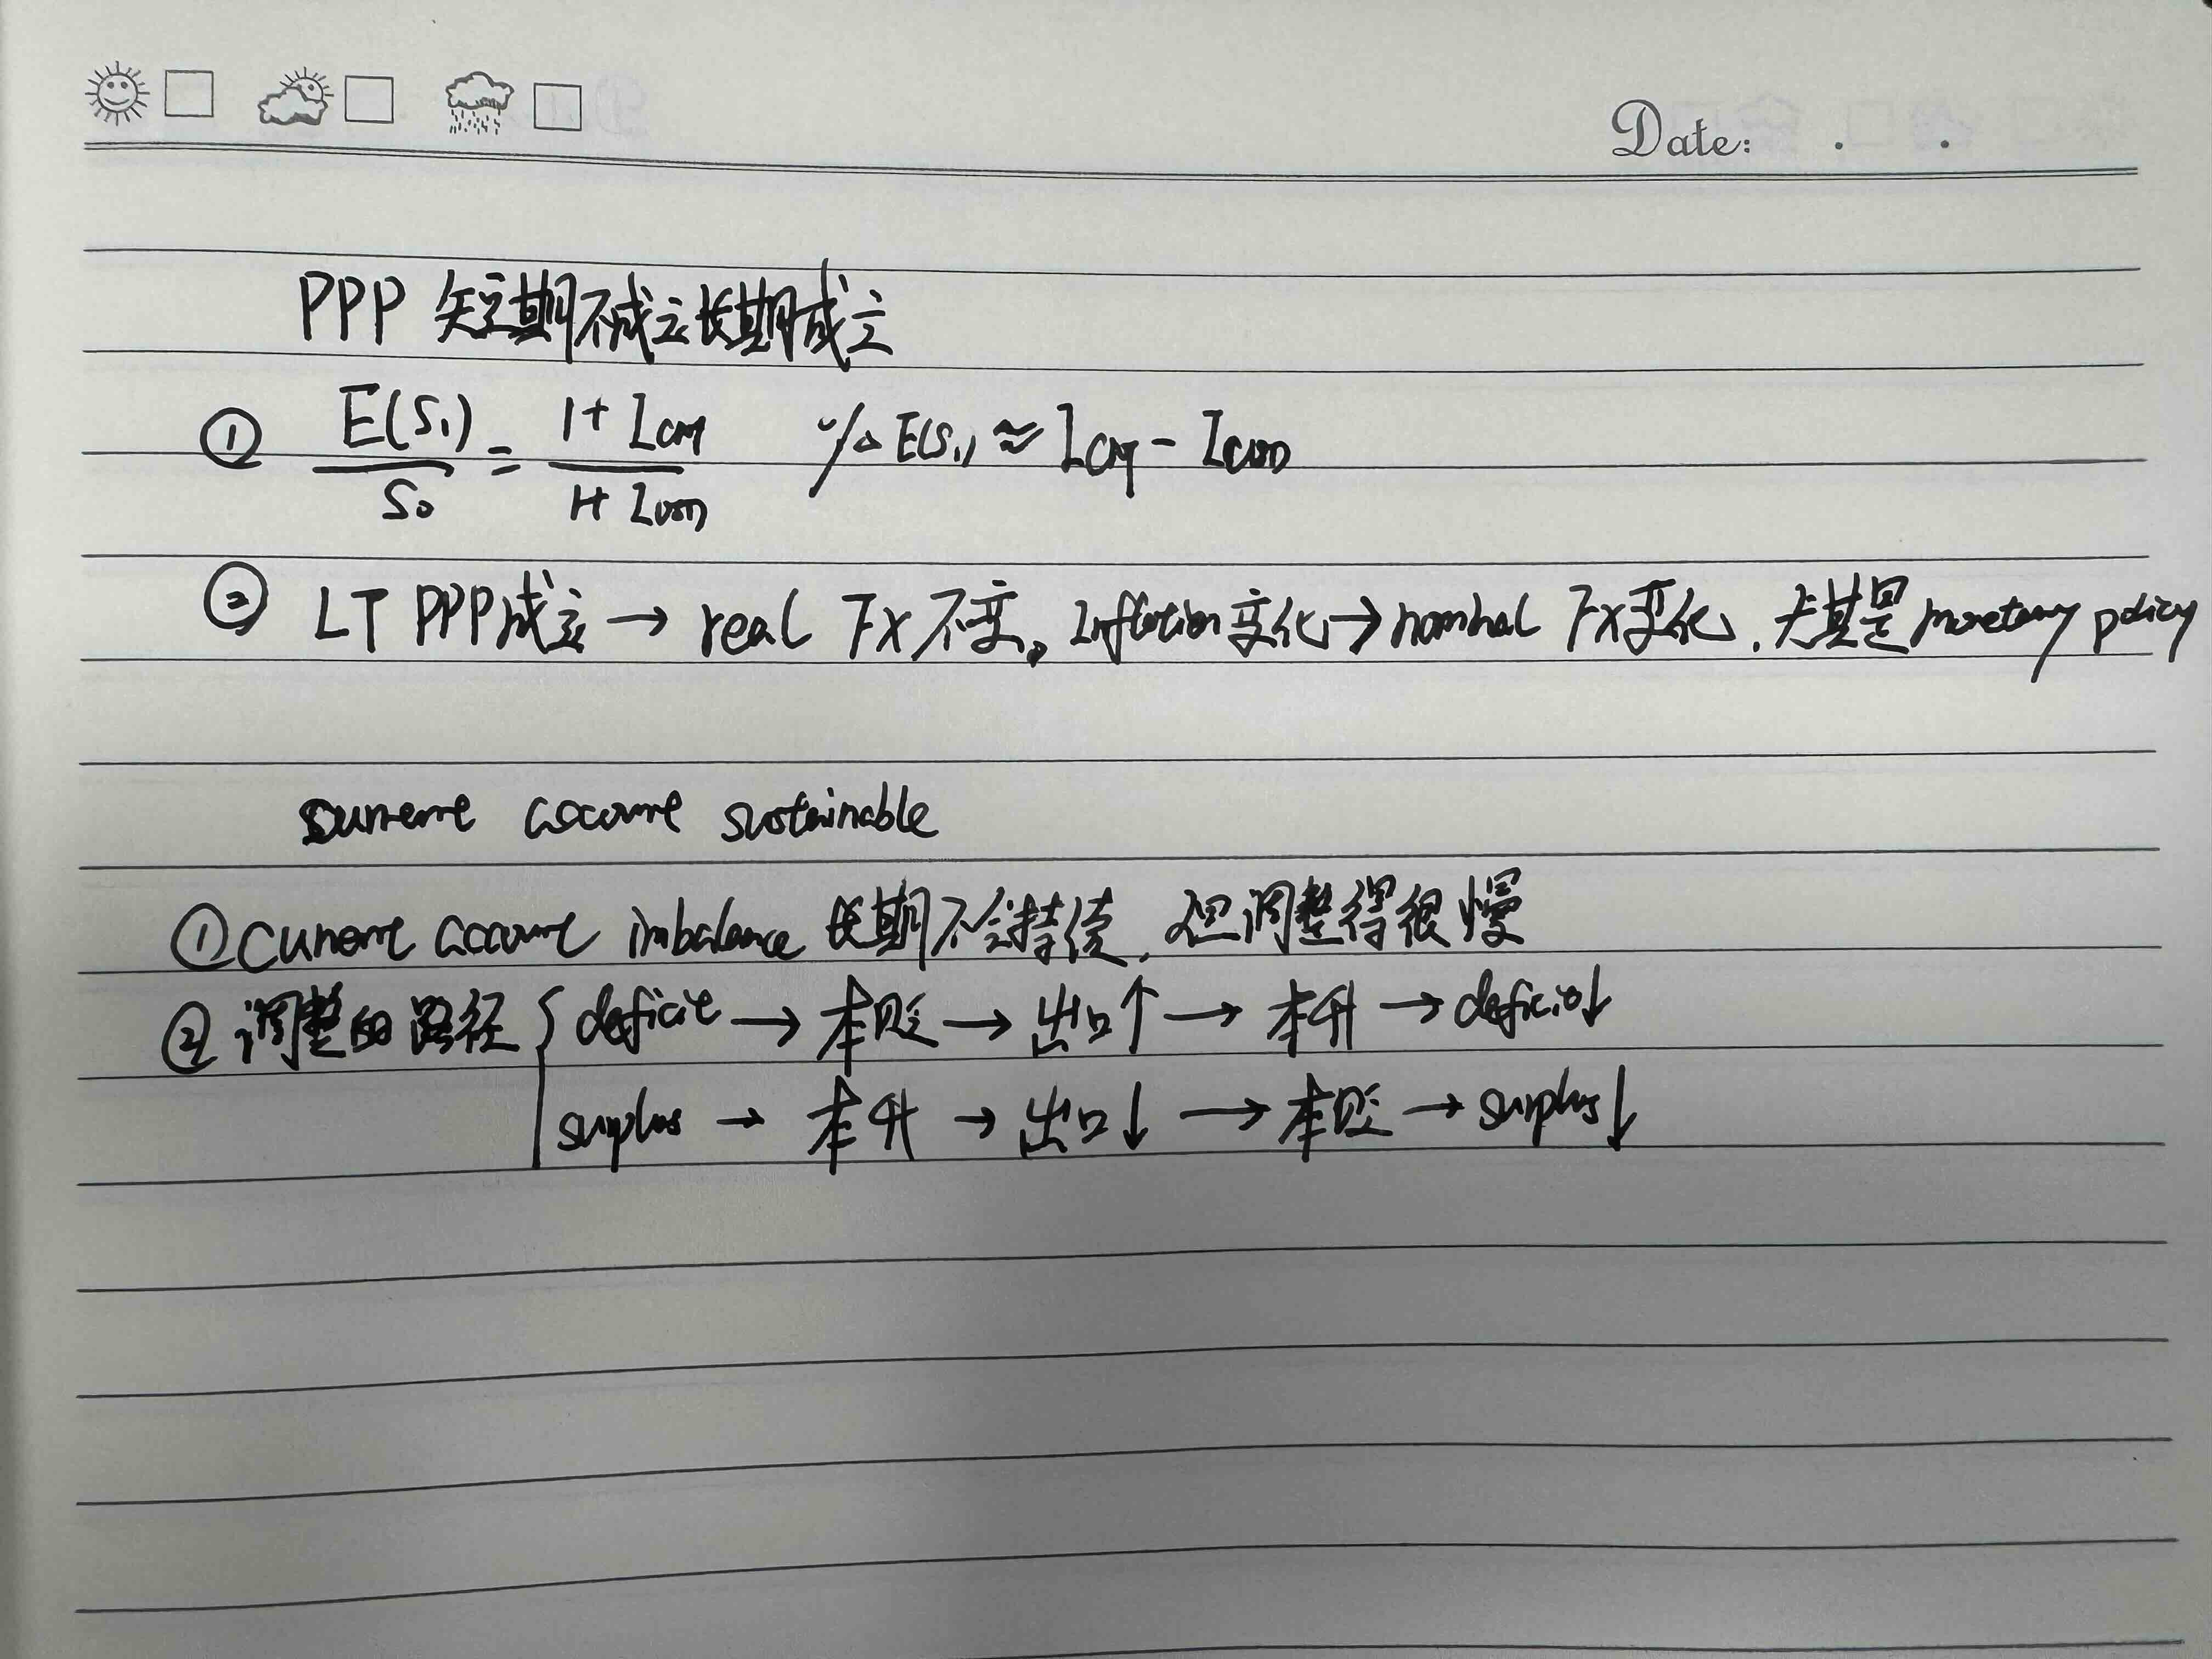 Date: . .
PPP 短期不成立长期成立
① E(S₁)/S₀ = 1+I_CNY/1+I_USD %△E(S₁) ≈ I_CNY - I_USD
② LT PPP成立 → real FX 不变。Inflation变化→nominal FX变化,尤其是monetary policy
current account sustainable
① current account imbalance 长期不会持续,但调整得很慢
② 调整的路径 { deficit → 本贬 → 出口↑ → 本升 → deficit↓
surplus → 本升 → 出口↓ → 本贬 → surplus↓